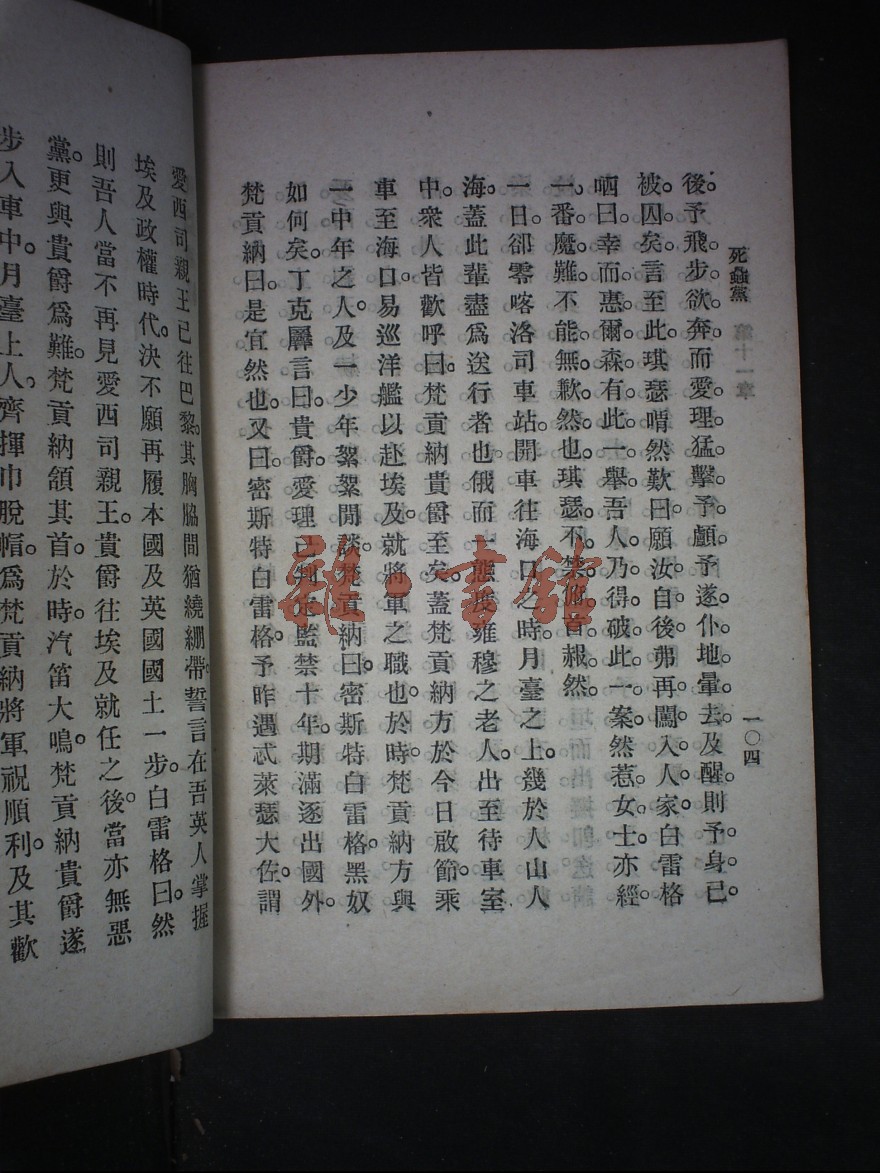 死蟲黨 第十一章 一〇四
後。予飛步欲奔。而愛理猛擊予顱。予遂仆地。暈去。及醒。則予身已。
被囚矣。言至此。琪瑟喟然歎曰。願汝自後。弗再闖入人家。白雷格
哂曰。幸而惠爾森有此一舉。吾人乃得破此一案。然惹女士亦經
一番魔難。不能無歉然也。琪瑟不禁俯首赧然。
一日。卻零喀洛司車站。開車往海口之時。月臺之上。幾於人山人
海。蓋此輩盡爲送行者也。俄而一態度雍穆之老人。出至待車室
中。衆人皆歡呼曰。梵貢納貴爵至矣。蓋梵貢納方於今日啟節。乘
車至海口。易巡洋艦以赴埃及。就將軍之職也。於時梵貢納方與
一中年之人。及一少年。絮絮閒談。梵貢納曰。密斯特白雷格。黑奴
如何矣。丁克羼言曰。貴爵。愛理已判定監禁十年。期滿逐出國外。
梵貢納曰。是宜然也。又曰。密斯特白雷格。予昨遇忒萊瑟大佐。謂
愛西司親王已往巴黎。其胸脇間猶繞綳帶。誓言在吾英人掌握
埃及政權時代。決不願再履本國及英國國土一步。白雷格曰。然
則吾人當不再見愛西司親王。貴爵往埃及就任之後。當亦無惡
黨。更與貴爵爲難。梵貢納頷其首。於時汽笛大鳴。梵貢納貴爵遂
步入車中。月臺上人。齊揮巾脫帽。爲梵貢納將軍祝順利。及其歡
雜·書館